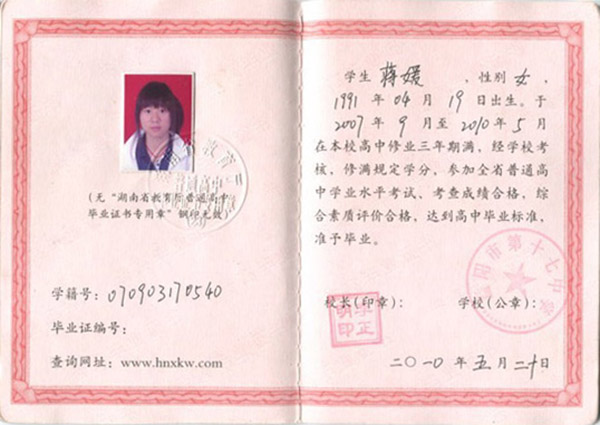 (无“湖南省教育厅普通高中
毕业证书专用章”钢印无效)
学籍号:070903170540
毕业证编号:
查询网址:www.hnxkw.com
学生 蒋媛 ,性别 女,
1991 年 04 月 19 日出生。于
2007 年 9 月至 2010 年 5 月
在本校高中修业三年期满,经学校考
核,修满规定学分,参加全省普通高
中学业水平考试、考查成绩合格,综
合素质评价合格,达到高中毕业标准,
准予毕业。
校长(印章):
学校(公章):
阳市第十七中学
二〇一〇 年 五 月 二十日